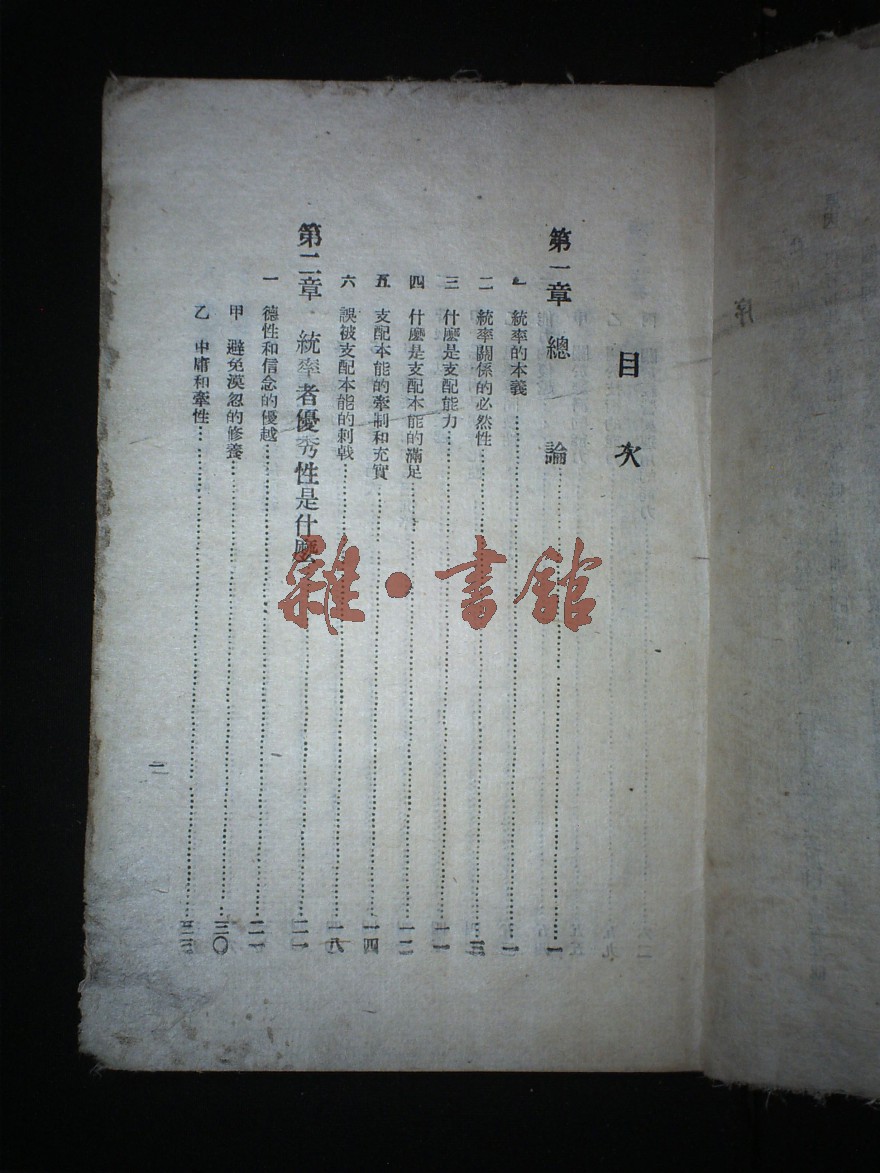 目次
第一章 總論……一
一 統率的本義……一
二 統率關係的必然性……三
三 什麼是支配能力……一一
四 什麼是支配本能的滿足……一二
五 支配本能的牽制和充實……一四
六 誤被支配本能的刺戟……一八
第二章 統率者優秀性是什麼……二一
一 德性和信念的優越……二一
甲 避免漠忽的修養……三〇
乙 中庸和牽性……三三
二
序
雜·書館